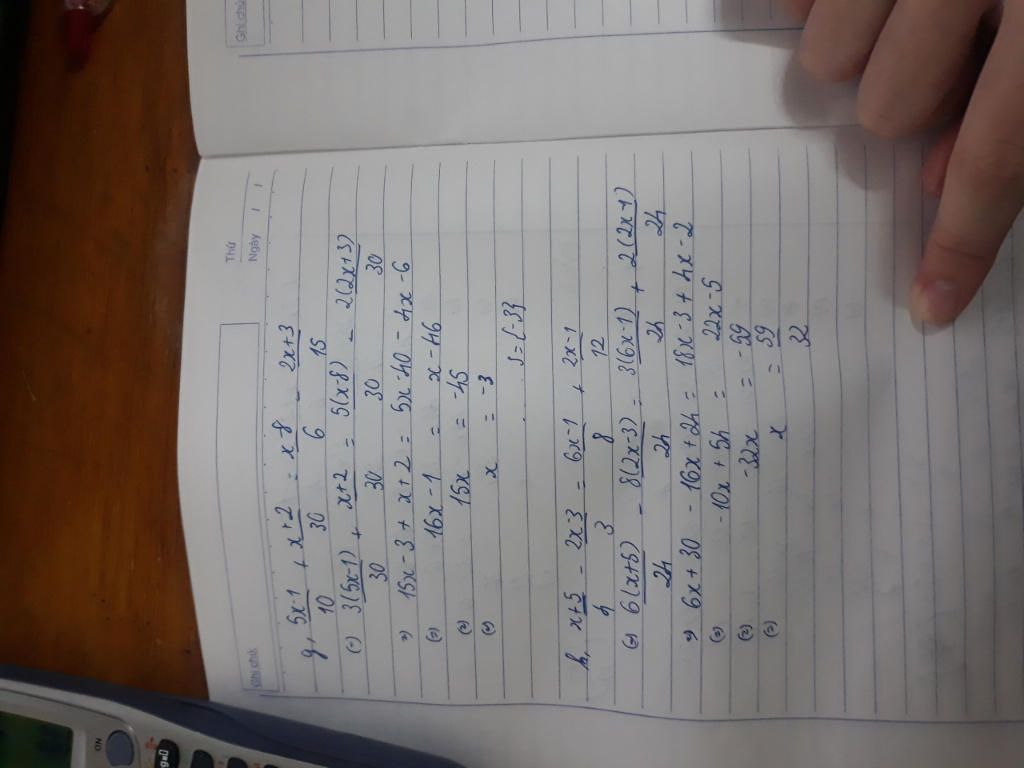 Ghi chú
Ghi chú
Thứ
Ngày / /
g, 5x-1/10 + x+2/30 = x-8/6 - 2x+3/15
(=) 3(5x-1)/30 + x+2/30 = 5(x-8)/30 - 2(2x+3)/30
=) 15x-3 + x+2 = 5x-40 - 4x-6
(=) 16x-1 = x-46
(=) 15x = -45
(=) x = -3
S={-3}
h, x+5/4 - 2x-3/3 = 6x-1/8 + 2x-1/12
(=) 6(x+5)/24 - 8(2x-3)/24 = 3(6x-1)/24 + 2(2x+1)/24
=) 6x+30 - 16x+24 = 18x-3 + 4x-2
(=) -10x + 54 = 22x-5
(=) -32x = -59
(=) x = 59/32
ON